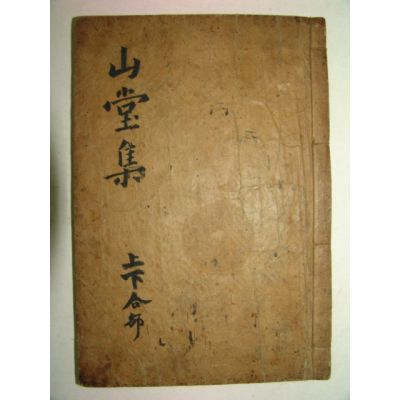 山堂集
上下合部